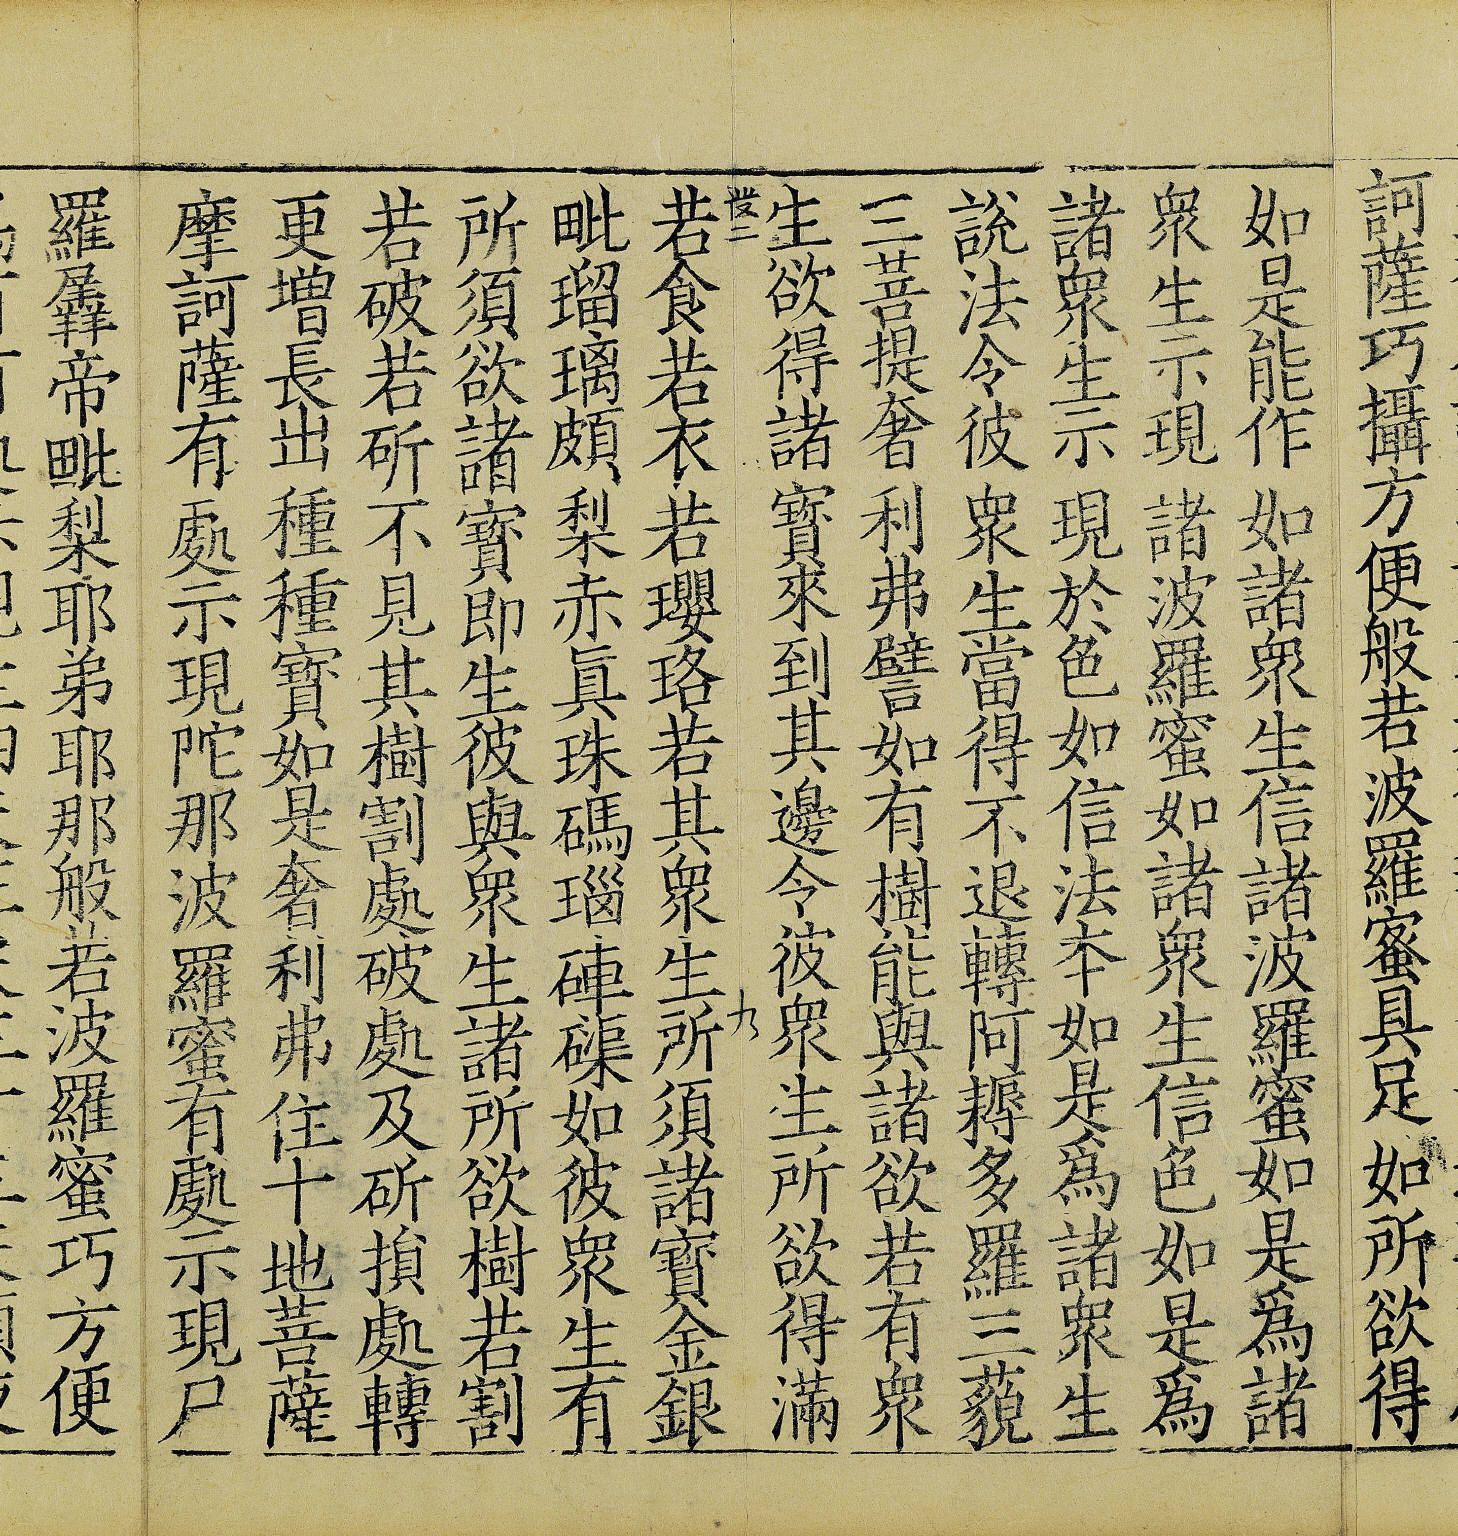 訶薩巧攝方便般若波羅蜜具足如所欲得
如是能作如諸衆生信諸波羅蜜如是爲諸
衆生示現諸波羅蜜如諸衆生信色如是爲
諸衆生示現於色如信法夲如是爲諸衆生
說法令彼衆生當得不退轉阿耨多羅三藐
三菩提奢利弗譬如有樹能與諸欲若有衆
生欲得諸寶來到其邊令彼衆生所欲得滿
九
若食若衣若瓔珞若其衆生所須諸寶金銀
毗瑠璃頗梨赤眞珠碼瑙硨磲如彼衆生有
所須欲諸寶即生彼與衆生諸所欲樹若割
若破若斫不見其樹割處破處及斫損處轉
更增長出種種寶如是奢利弗住十地菩薩
摩訶薩有處示現陀那波羅蜜有處示現尸
羅羼帝毗梨耶弟耶那般若波羅蜜巧方便